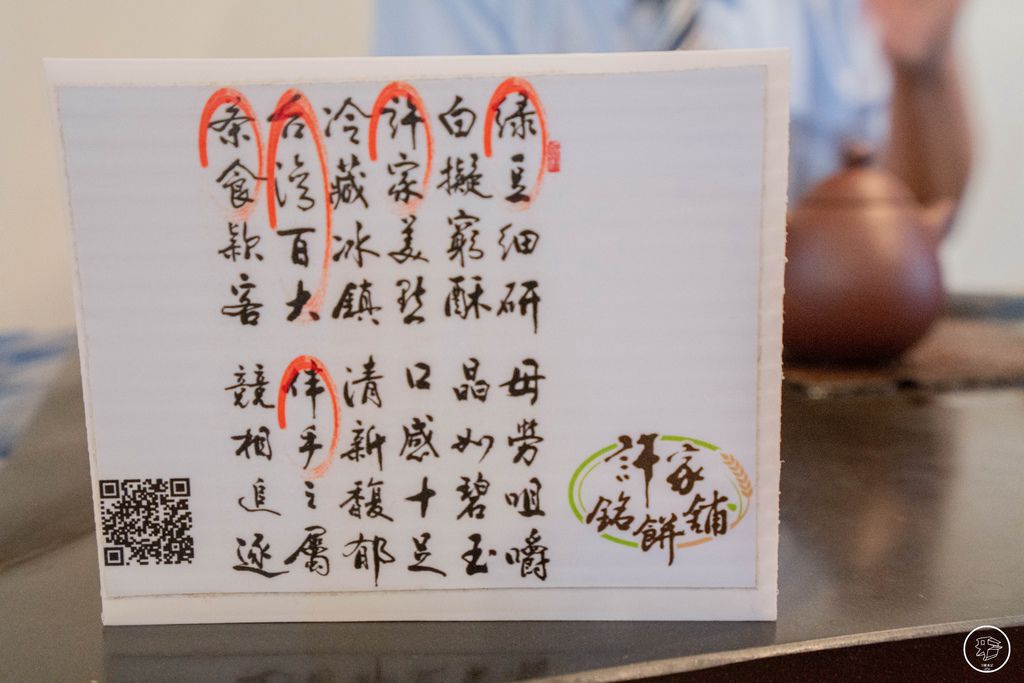 綠豆細研 母勞咀嚼
白擬窮酥 晶如碧玉
許家美點 口感十足
冷藏冰鎮 清新馥郁
台灣百大 伴手之屬
茶食款客 競相追逐
許家
銘餅舖